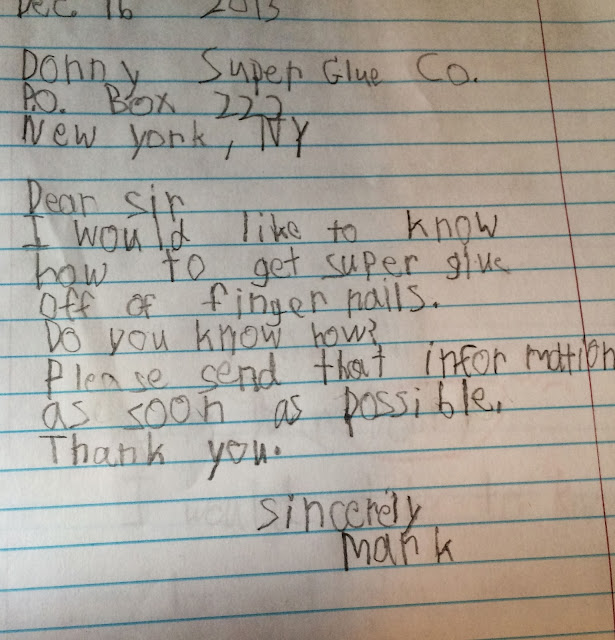 Dec. 16 2013
Donny Super Glue Co.
P.O. Box 222
New york, NY
Dear Sir
I would like to know
how to get super glue
off of finger nails.
Do you know how?
Please send that information
as soon as possible.
Thank you.
Sincerely
Mark